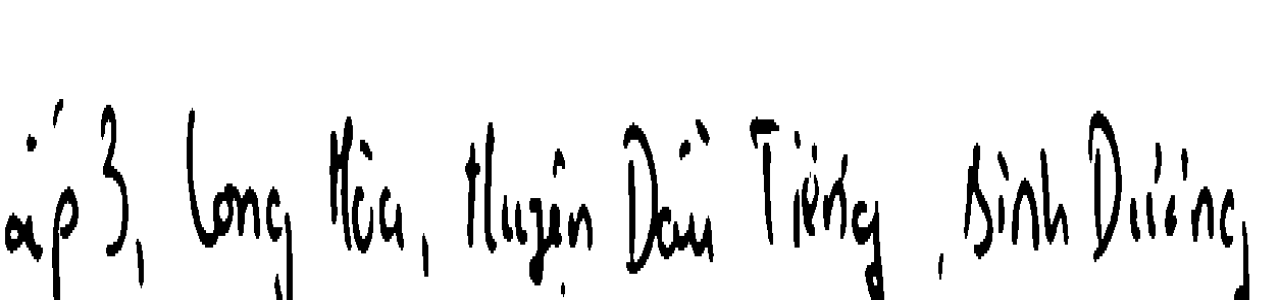 ấp 3, Long Hòa, Huyện Dầu Tiếng, Bình Dương